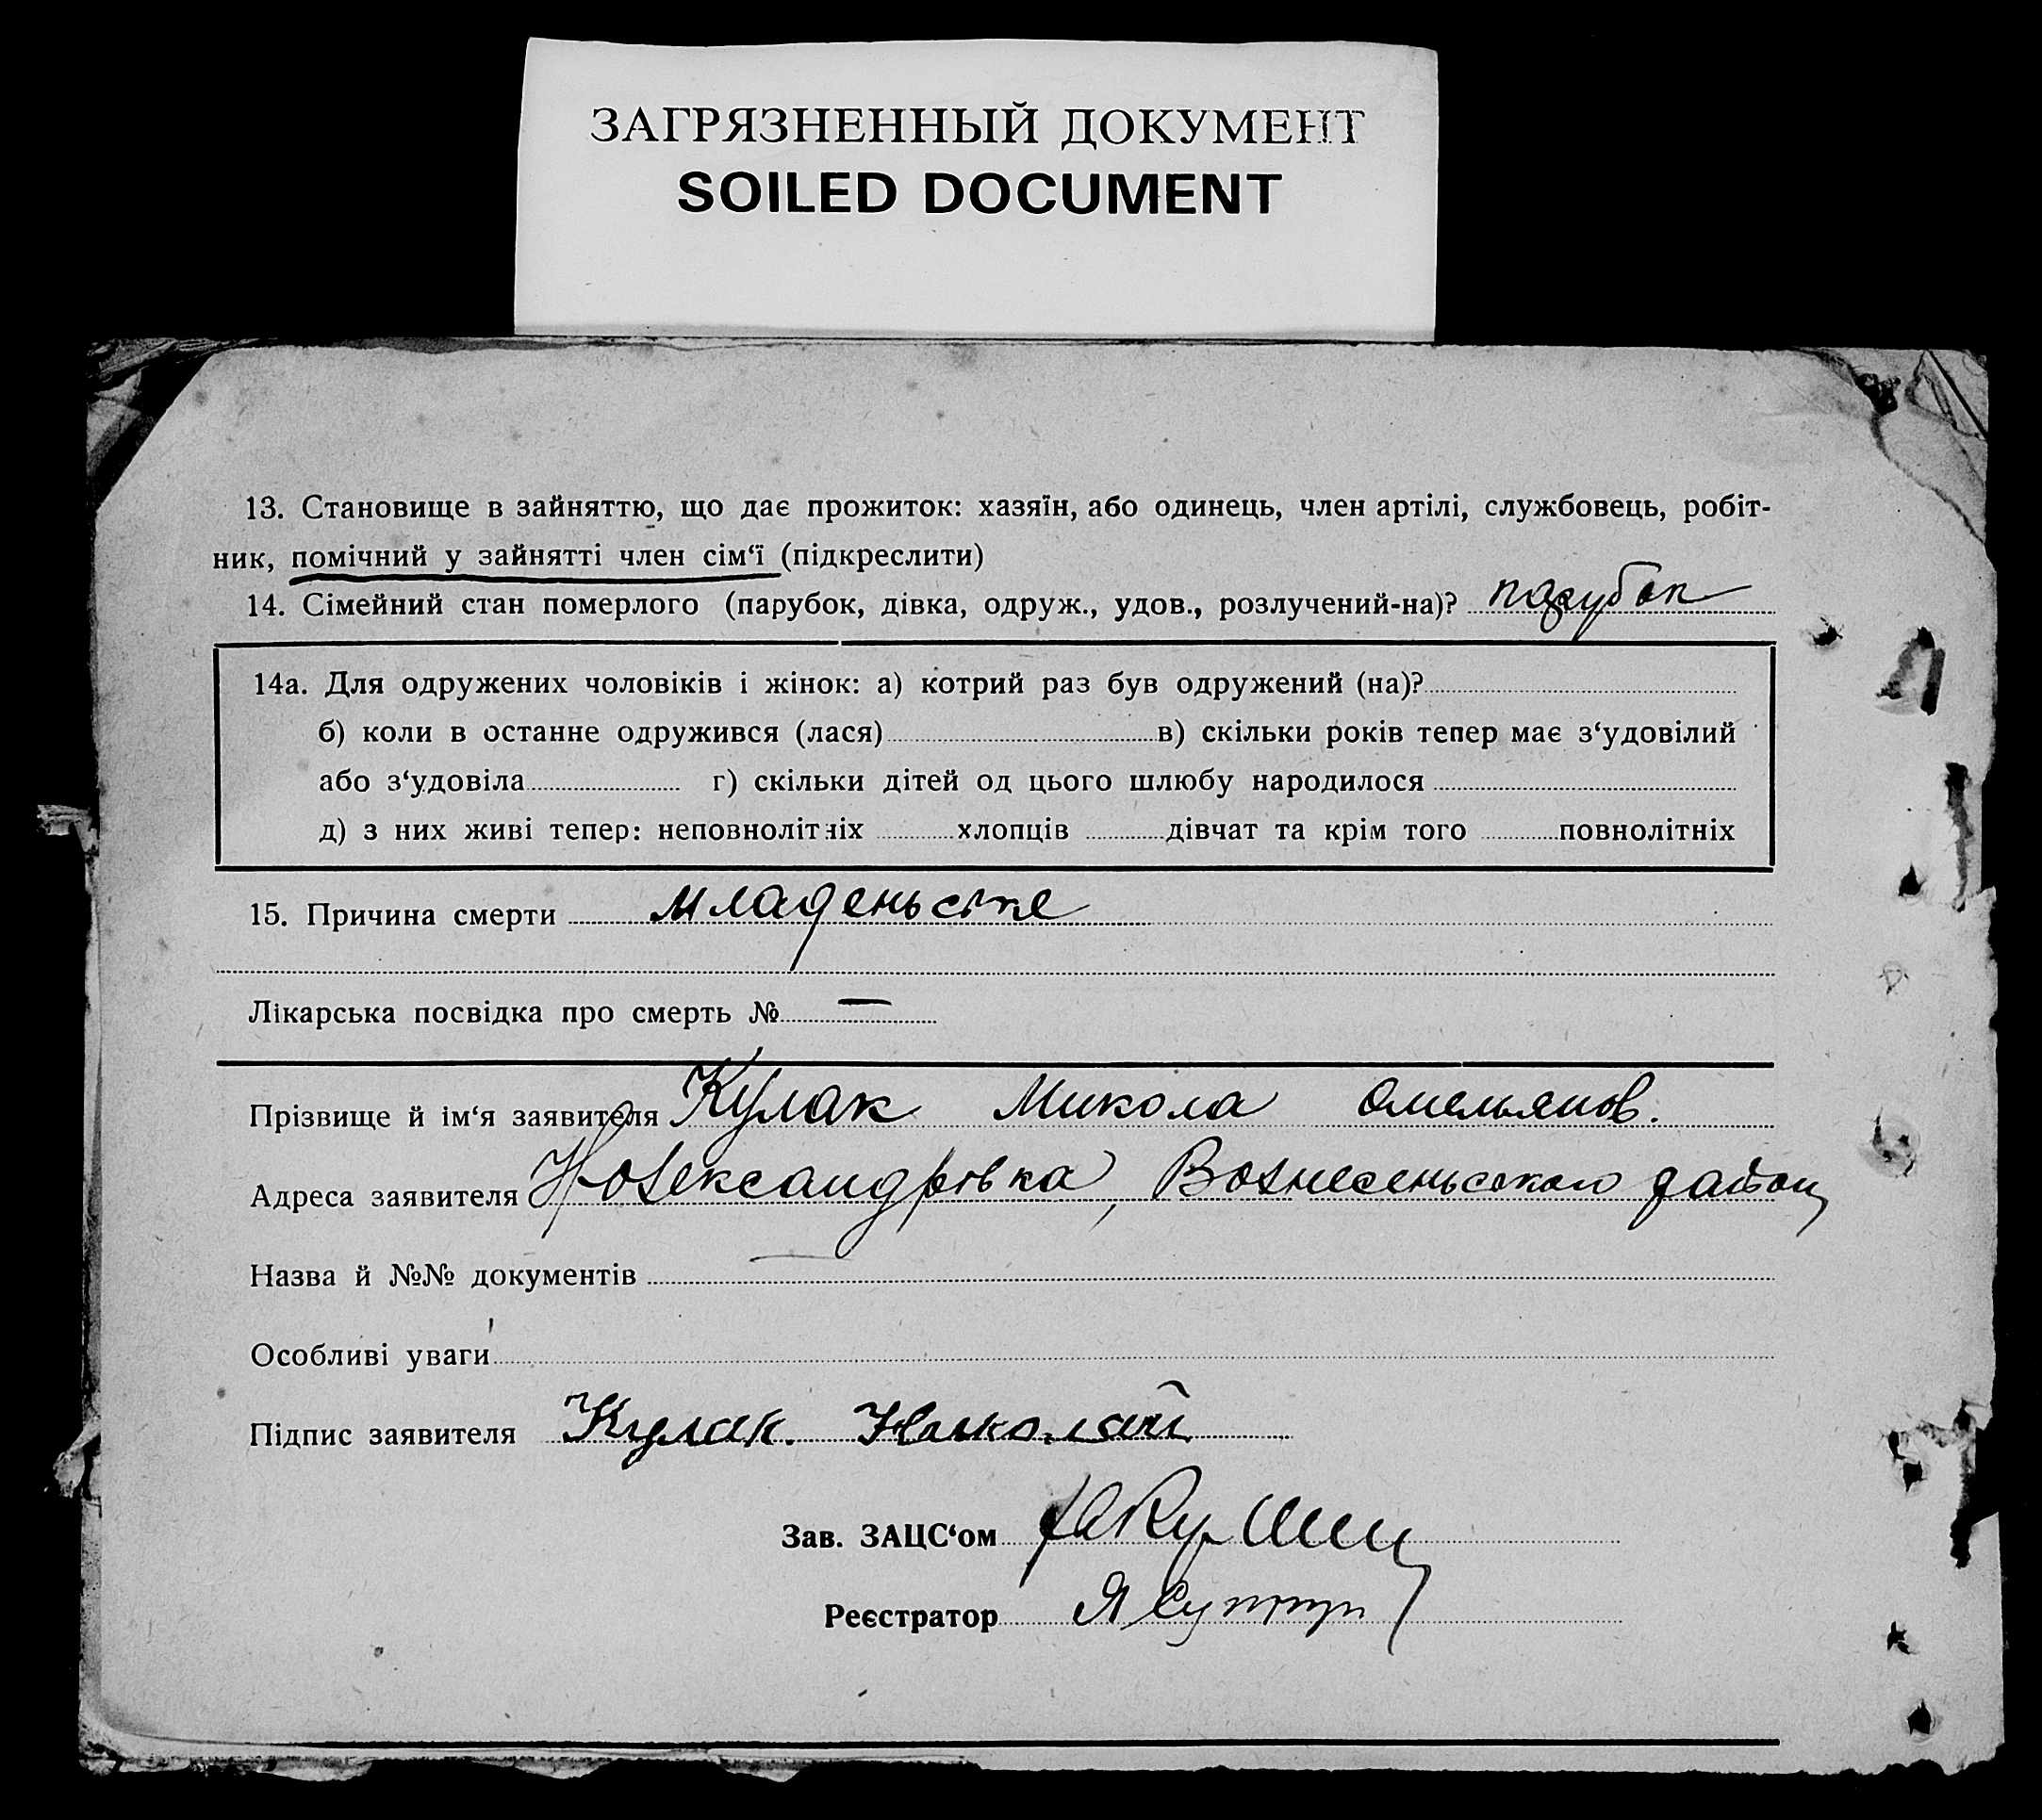 ЗАГРЯЗНЕННЫЙ ДОКУМЕНТ
SOILED DOCUMENT
13. Становище в зайняттю, що дає прожиток: хазяїн, або одинець, член артілі, службовець, робіт-
ник, помічний у зайнятті член сім‘ї (підкреслити)
14. Сімейний стан померлого (парубок, дівка, одруж., удов., розлучений-на)? парубок
14а. Для одружених чоловіків і жінок: а) котрий раз був одружений (на)?
б) коли в останне одружився (лася) в) скільки років тепер має з‘удовілий
або з‘удовіла г) скільки дітей од цього шлюбу народилося
д) з них живі тепер: неповнолітніх хлопців дівчат та крім того повнолітніх
15. Причина смерти младеньське
Лікарська посвідка про смерть № —
Прізвище й ім‘я заявителя Кулак Микола Омельянов.
Адреса заявителя Вознесеньського району
Назва й №№ документів —
Особливі уваги
Підпис заявителя Кулак. Николай
Зав. ЗАЦС‘ом
Реєстратор